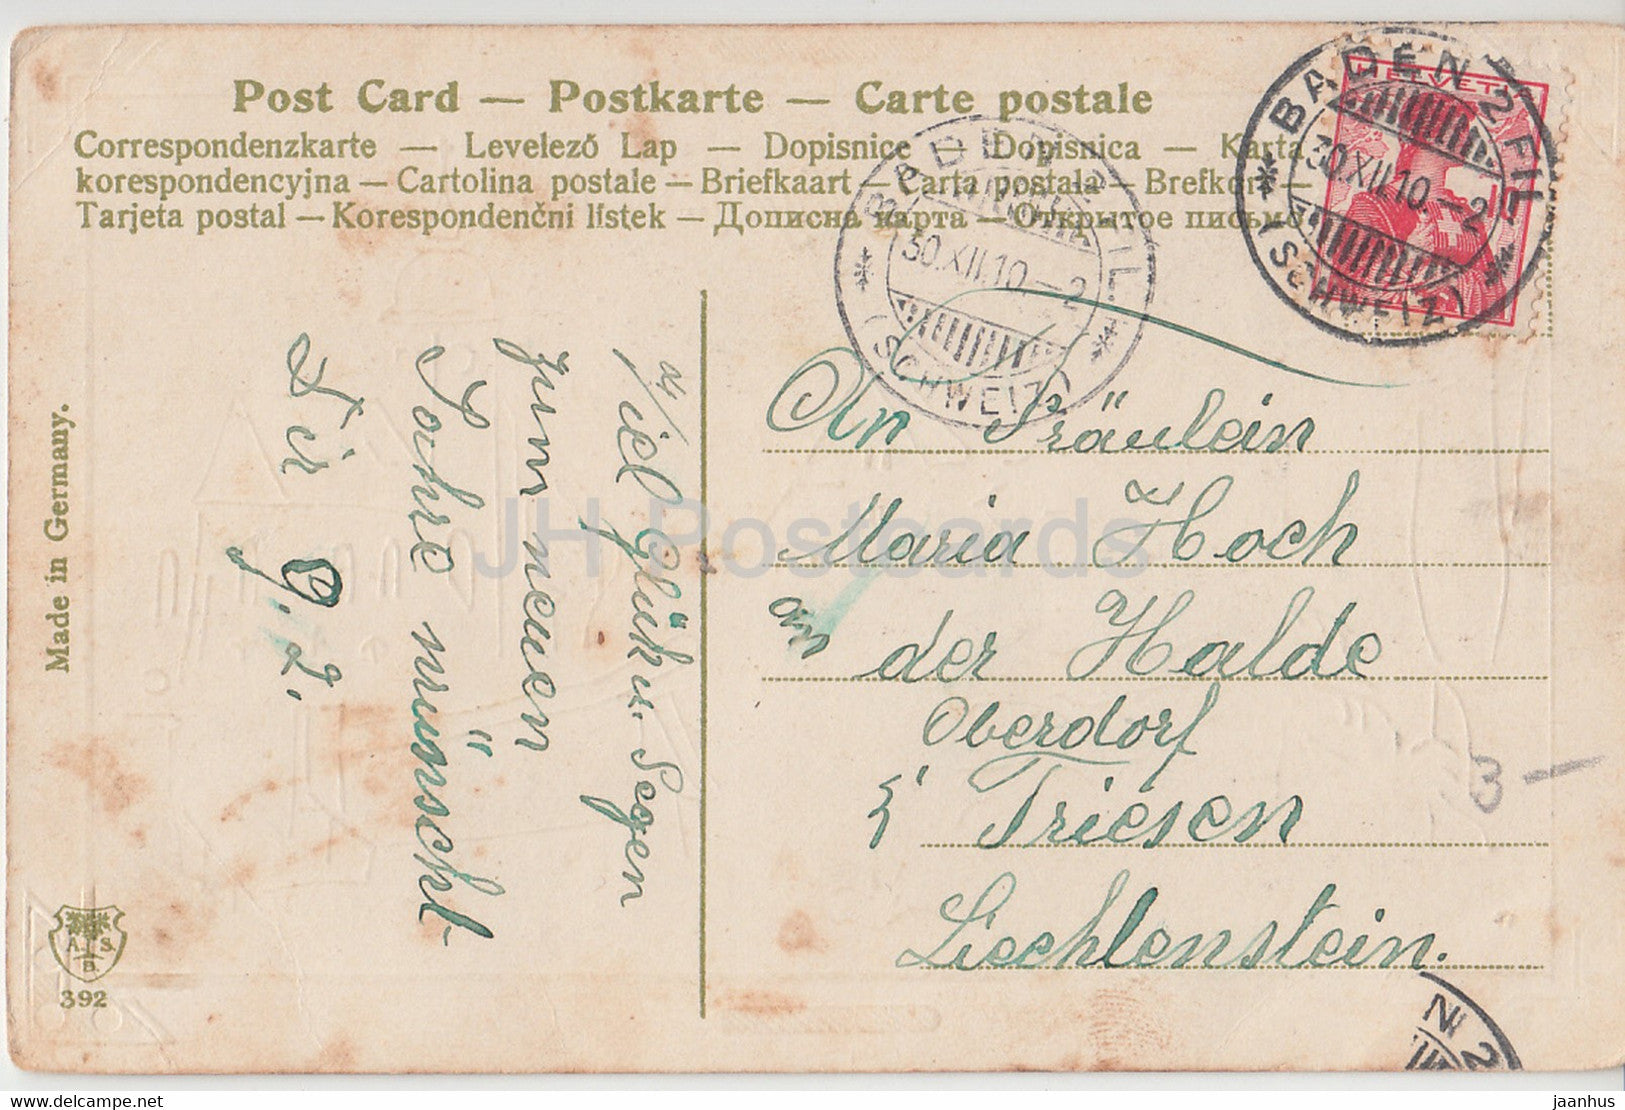 Post Card — Postkarte — Carte postale
Correspondenzkarte — Levelező Lap — Dopisnice — Dopisnica — Karta
korespondencyjna — Cartolina postale — Briefkaart — Carta postala — Brefkort —
Tarjeta postal — Korespondenčni lístek — Дописна карта — Открытое письмо
BADEN 2 FIL.
30.XII.10.–2
(SCHWEIZ)
BADEN 2 FIL.
30.XII.10.–2
(SCHWEIZ)
HELVET
Viel Glük u. Segen
zum neuen
Jahre wünscht
Dir
An Fräulein
Maria Hoch
an der Halde
Oberdorf
Triesen
Liechtenstein.
3 —
Made in Germany.
A. S.
B.
392
N 2
JH Postcards
delcampe.net
jaanhus